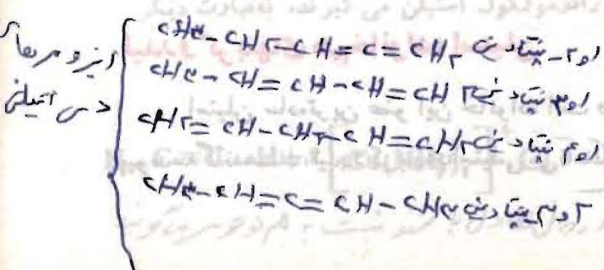 ایزومرهای
دی اتیلنی
CH۳-CH۲-CH=C=CH۲ ۱و۲-پنتادین
CH۳-CH=CH-CH=CH۲ ۱و۳ پنتادین
CH۲=CH-CH۲-CH=CH۲ ۱و۴ پنتادین
CH۳-CH=C=CH-CH۳ ۲و۳ پنتادین